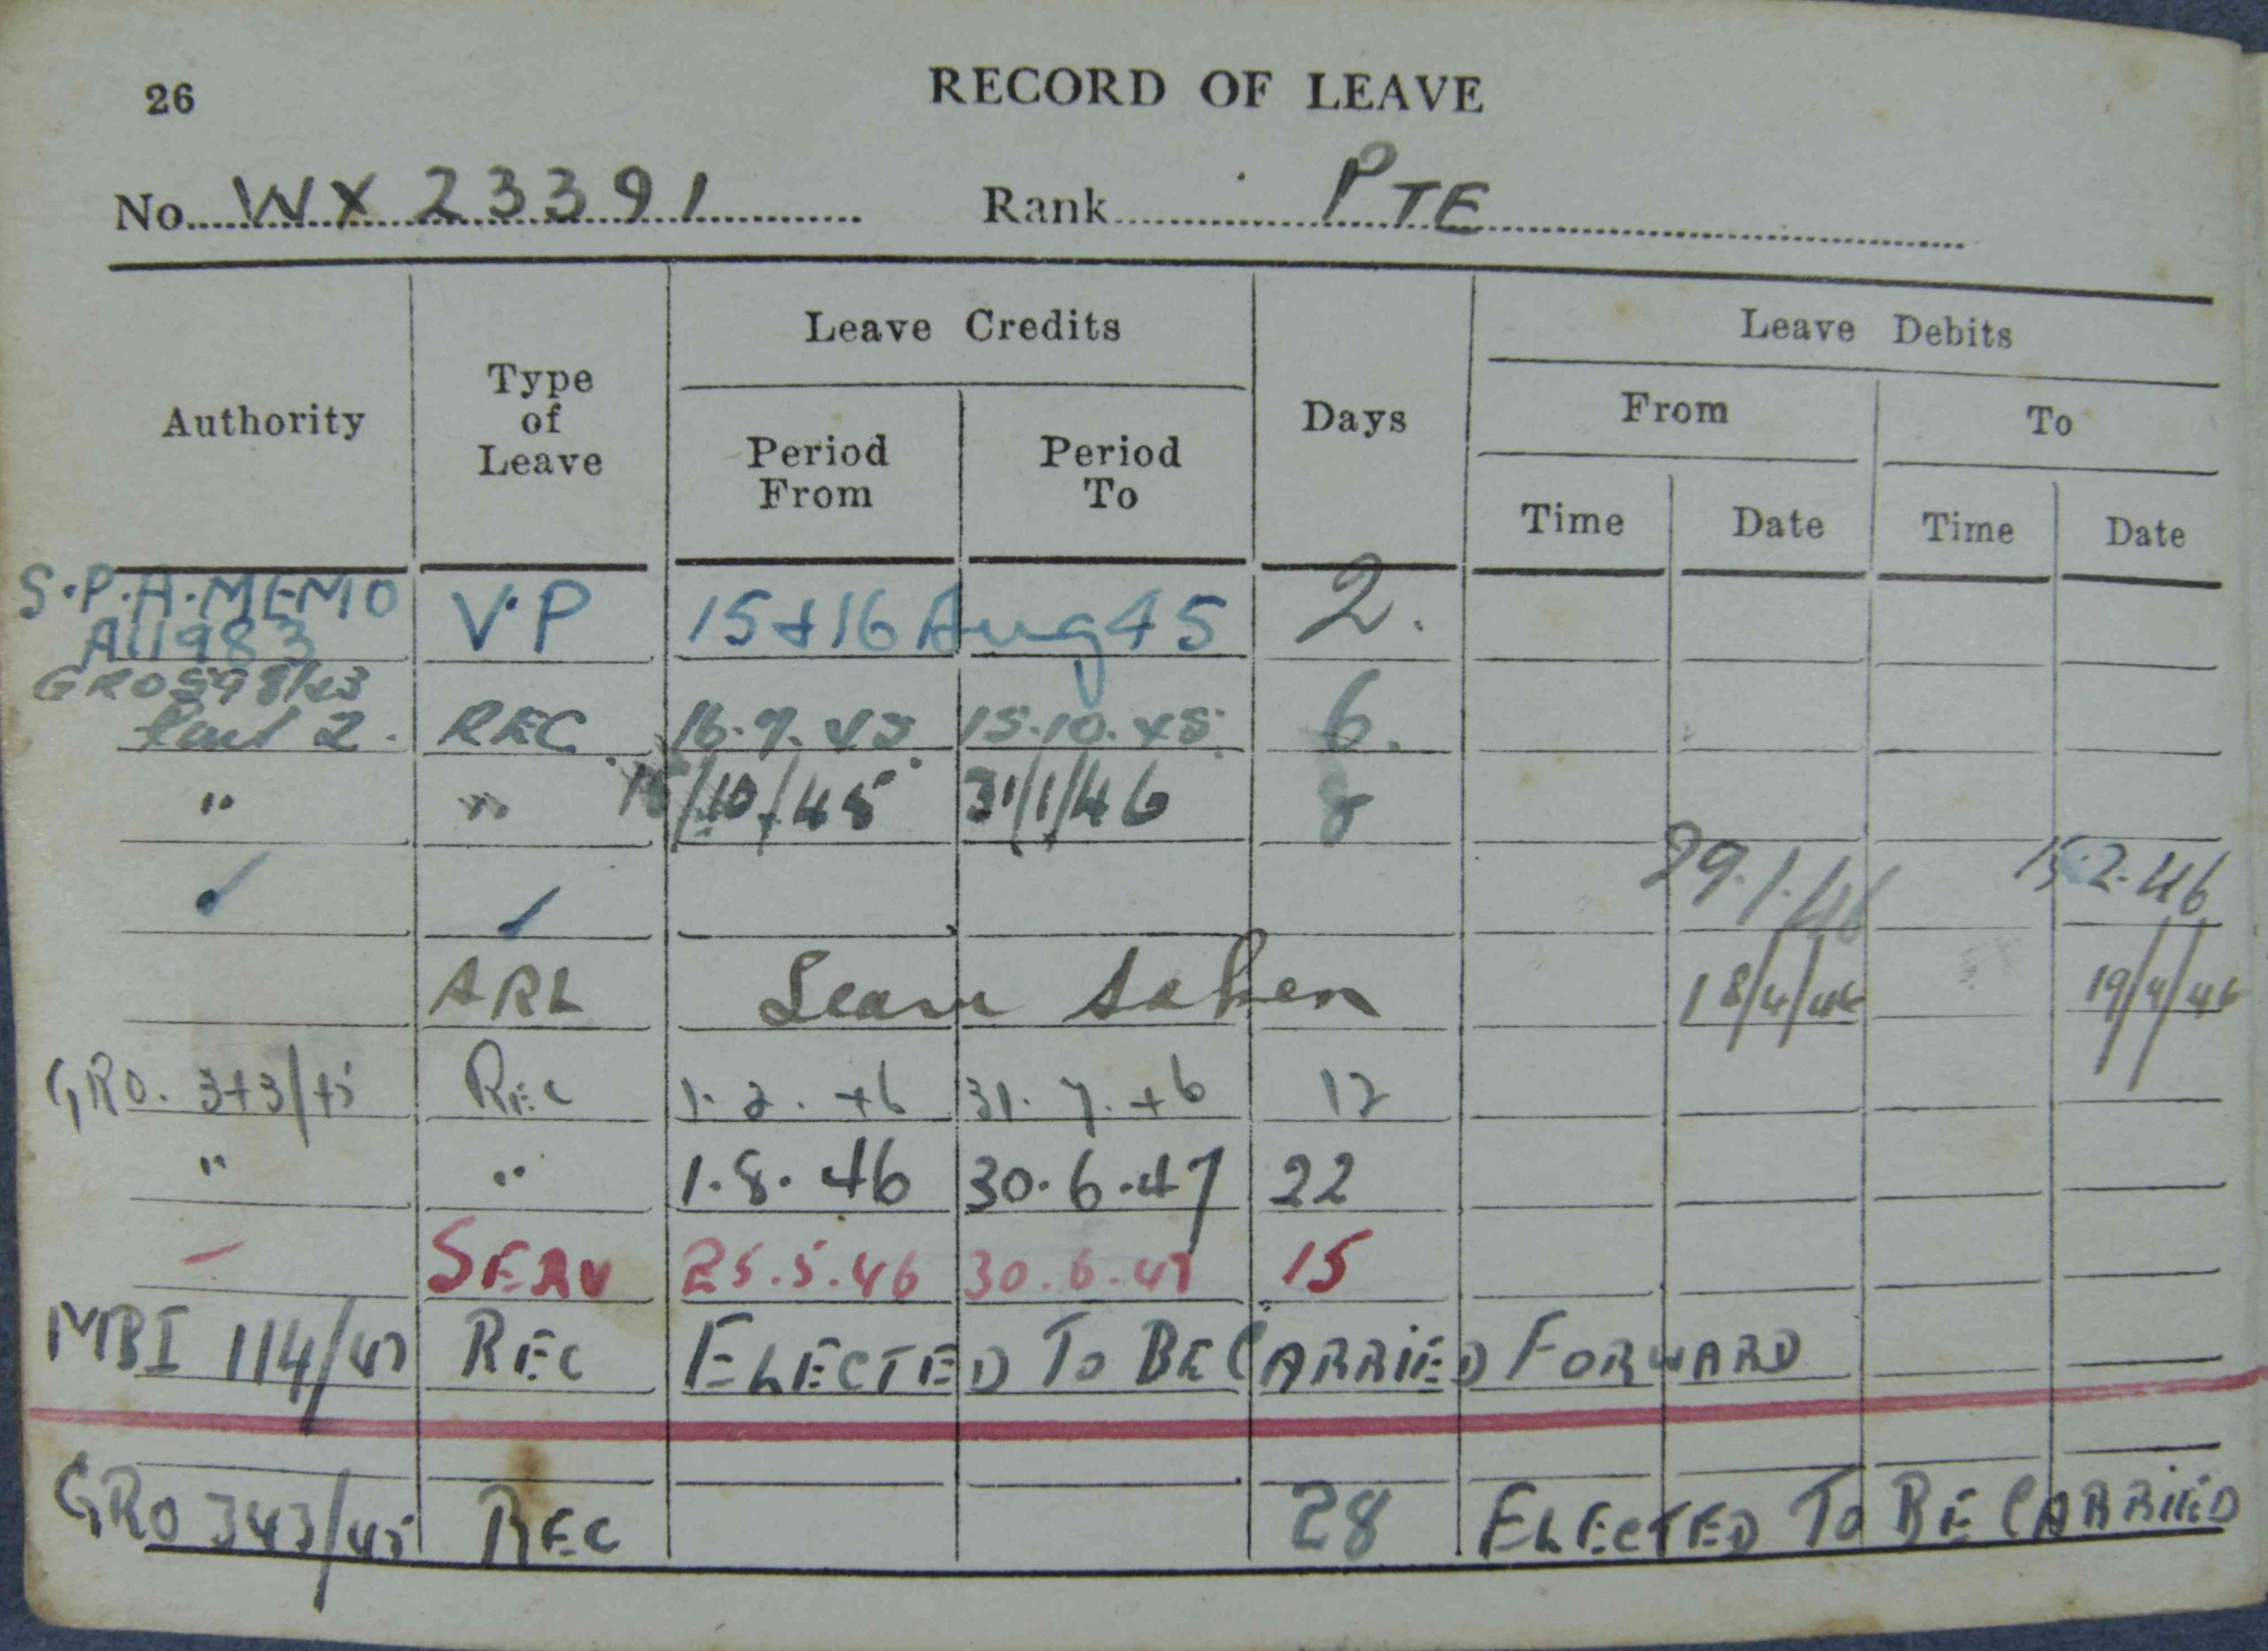 26
RECORD OF LEAVE
No. WX 23391 Rank PTE
Authority
Type
of
Leave
Leave Credits
Period
From
Period
To
Days
Leave Debits
From
To
Time Date Time Date
S.P.A. MEMO
A11983 V.P 15+16 Aug 45 2.
GRO 598/43
Part 2. REC 16.9.45 15.10.45 6.
" " /10/45 31/1/46 8
29.1.46 15.2.46
ARL Leave taken 18/4/46 19/4/46
GRO. 343/45 REC 1.2.46 31.7.46 12
" " 1.8.46 30.6.47 22
- SERV 25.5.46 30.6.47 15
MBI 114/47 REC ELECTED TO BE CARRIED FORWARD
GRO 343/45 REC 28 ELECTED TO BE CARRIED